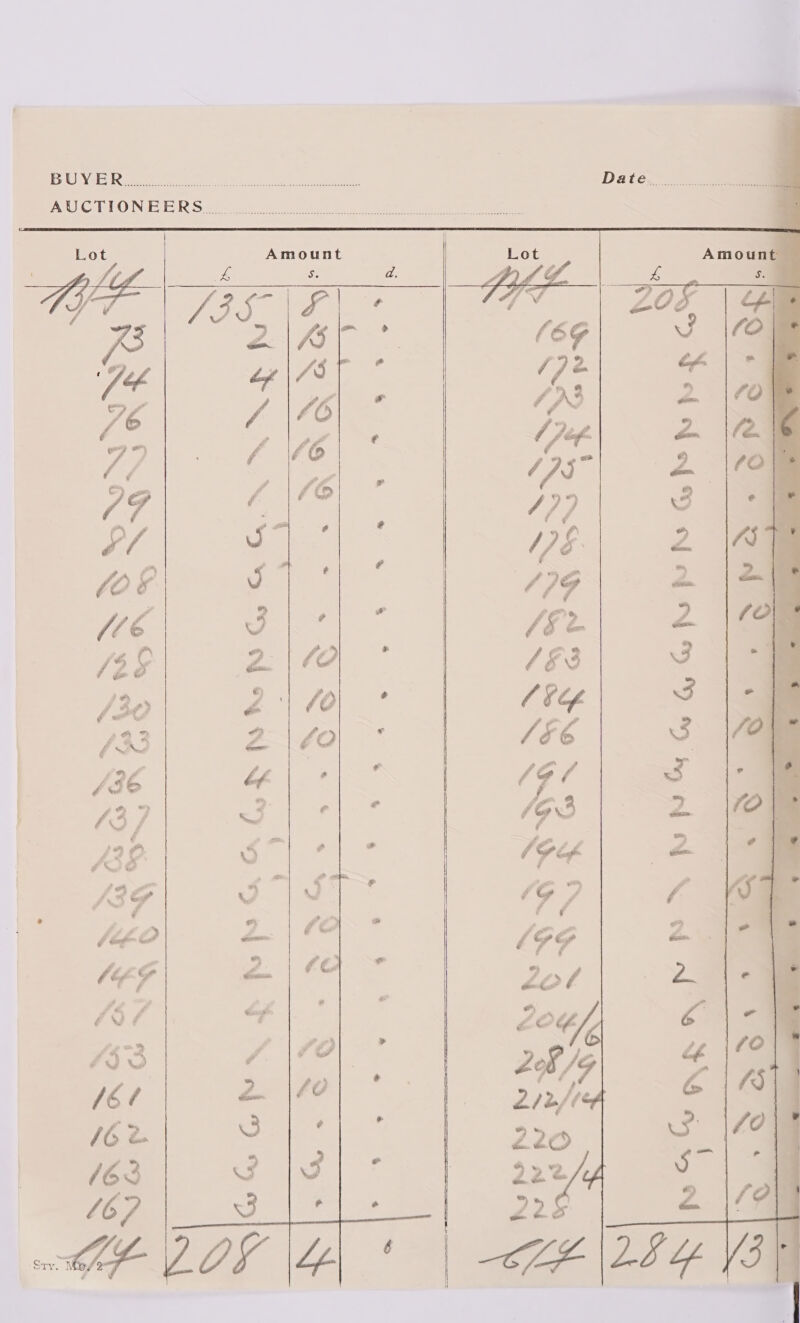 BUYER
Date
AUCTIONEERS
Lot Amount
£ s. d.
B/F 135 8 -
73 2 15 -
74 4 15 -
76 1 16 -
77 1 16 -
79 1 16 -
81 5 - -
108 5 - -
116 3 - -
128 2 10 -
130 2 10 -
133 2 10 -
136 4 - -
137 3 - -
138 5 - -
139 5 5 -
140 2 10 -
149 2 10 -
151 4 - -
153 1 10 -
161 2 10 -
162 3 - -
163 3 3 -
167 3 - -
C/F 208 4 -
Lot Amount
£ s.
B/F 208 4 -
169 3 10 -
172 4 - -
173 2 10 -
174 2 12 6
175 2 10 -
177 3 - -
178 2 15 -
179 2 2 -
182 2 10 -
183 3 - -
184 3 - -
186 3 10 -
191 3 - -
193 2 10 -
194 2 - -
197 1 15 -
199 2 - -
201 2 - -
204/6 6 - -
208/9 4 10 -
212/14 6 15 -
220 3 10 -
222/4 5 - -
228 2 10 -
C/F 284 13